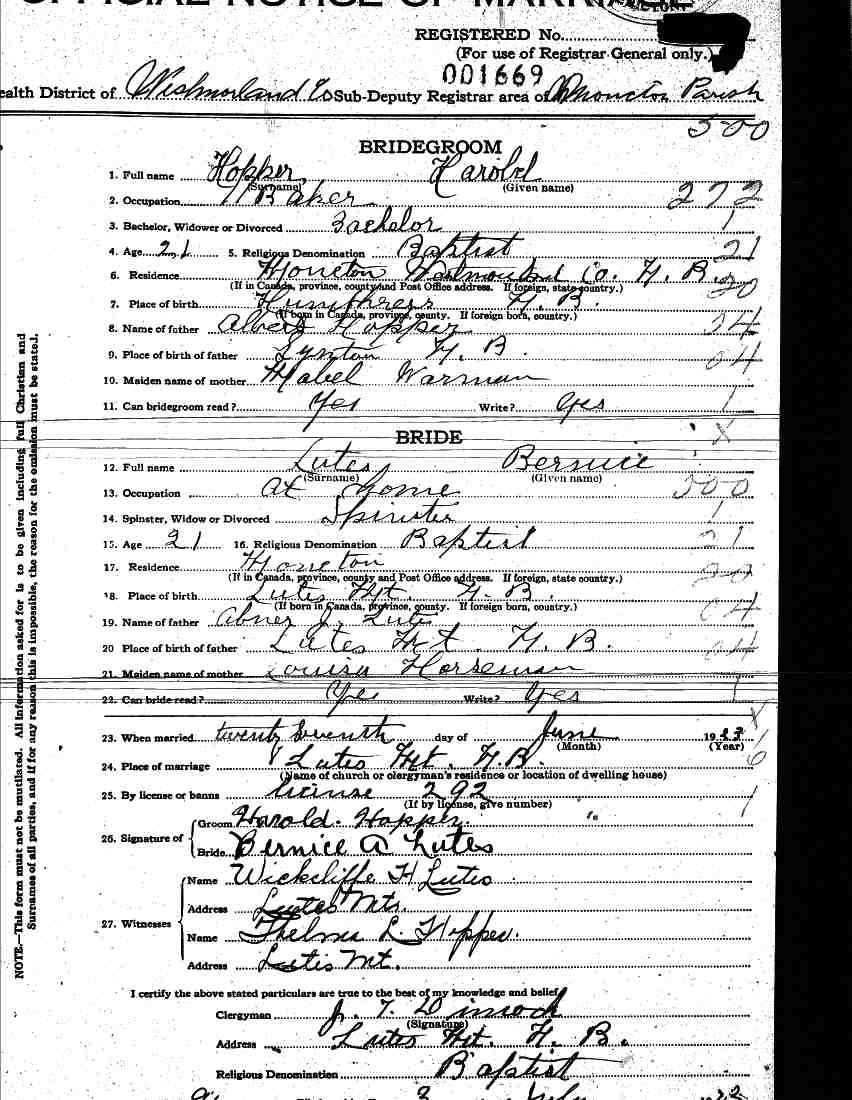 OFFICIAL NOTICE OF MARRIAGE
REGISTERED No.
(For use of Registrar-General only.)
001669
ealth District of Westmorland Co Sub-Deputy Registrar area of Moncton Parish
500
BRIDEGROOM
1. Full name Hopper, Harold
(Surname) (Given name)
2. Occupation Baker 272
3. Bachelor, Widower or Divorced Bachelor 1
4. Age 21 5. Religious Denomination Baptist 21
6. Residence Moncton Westmorland Co. N. B. 20
(If in Canada, province, county and Post Office address. If foreign, state country.)
7. Place of birth Humphreys N. B.
(If born in Canada, province, county. If foreign born, country.)
8. Name of father Albert Hopper 34
9. Place of birth of father Lynton N. B. 04
10. Maiden name of mother Mabel Warman
11. Can bridegroom read? Yes Write? Yes 1
BRIDE X
12. Full name Lutes, Bernice
(Surname) (Given name)
13. Occupation At home 500
14. Spinster, Widow or Divorced Spinster 1
15. Age 21 16. Religious Denomination Baptist 21
17. Residence Moncton 20
(If in Canada, province, county and Post Office address. If foreign, state country.)
18. Place of birth Lutes Mt. N. B. 04
(If born in Canada, province, county. If foreign born, country.)
19. Name of father Abner J. Lutes
20 Place of birth of father Lutes Mt. N. B. 04
21. Maiden name of mother Louisa Horseman
22. Can bride read? Yes Write? Yes 1
23. When married twenty seventh day of June 19
(Month) (Year)
24. Place of marriage Lutes Mt. N.B. 6
(Name of church or clergyman's residence or location of dwelling house)
25. By license or banns license 292 1
(If by license, give number)
26. Signature of Groom Harold Hopper.
Bride Bernice A Lutes
27. Witnesses Name Wickcliffe H Lutes
Address Lutes Mts.
Name Thelma L. Hopper.
Address Lutes Mt.
I certify the above stated particulars are true to the best of my knowledge and belief
Clergyman J. T. Dimock
(Signature)
Address Lutes Mt. N. B.
Religious Denomination Baptist
NOTE—This form must not be mutilated. All information asked for is to be given including full Christian and
Surnames of all parties, and if for any reason this is impossible, the reason for the omission must be stated.